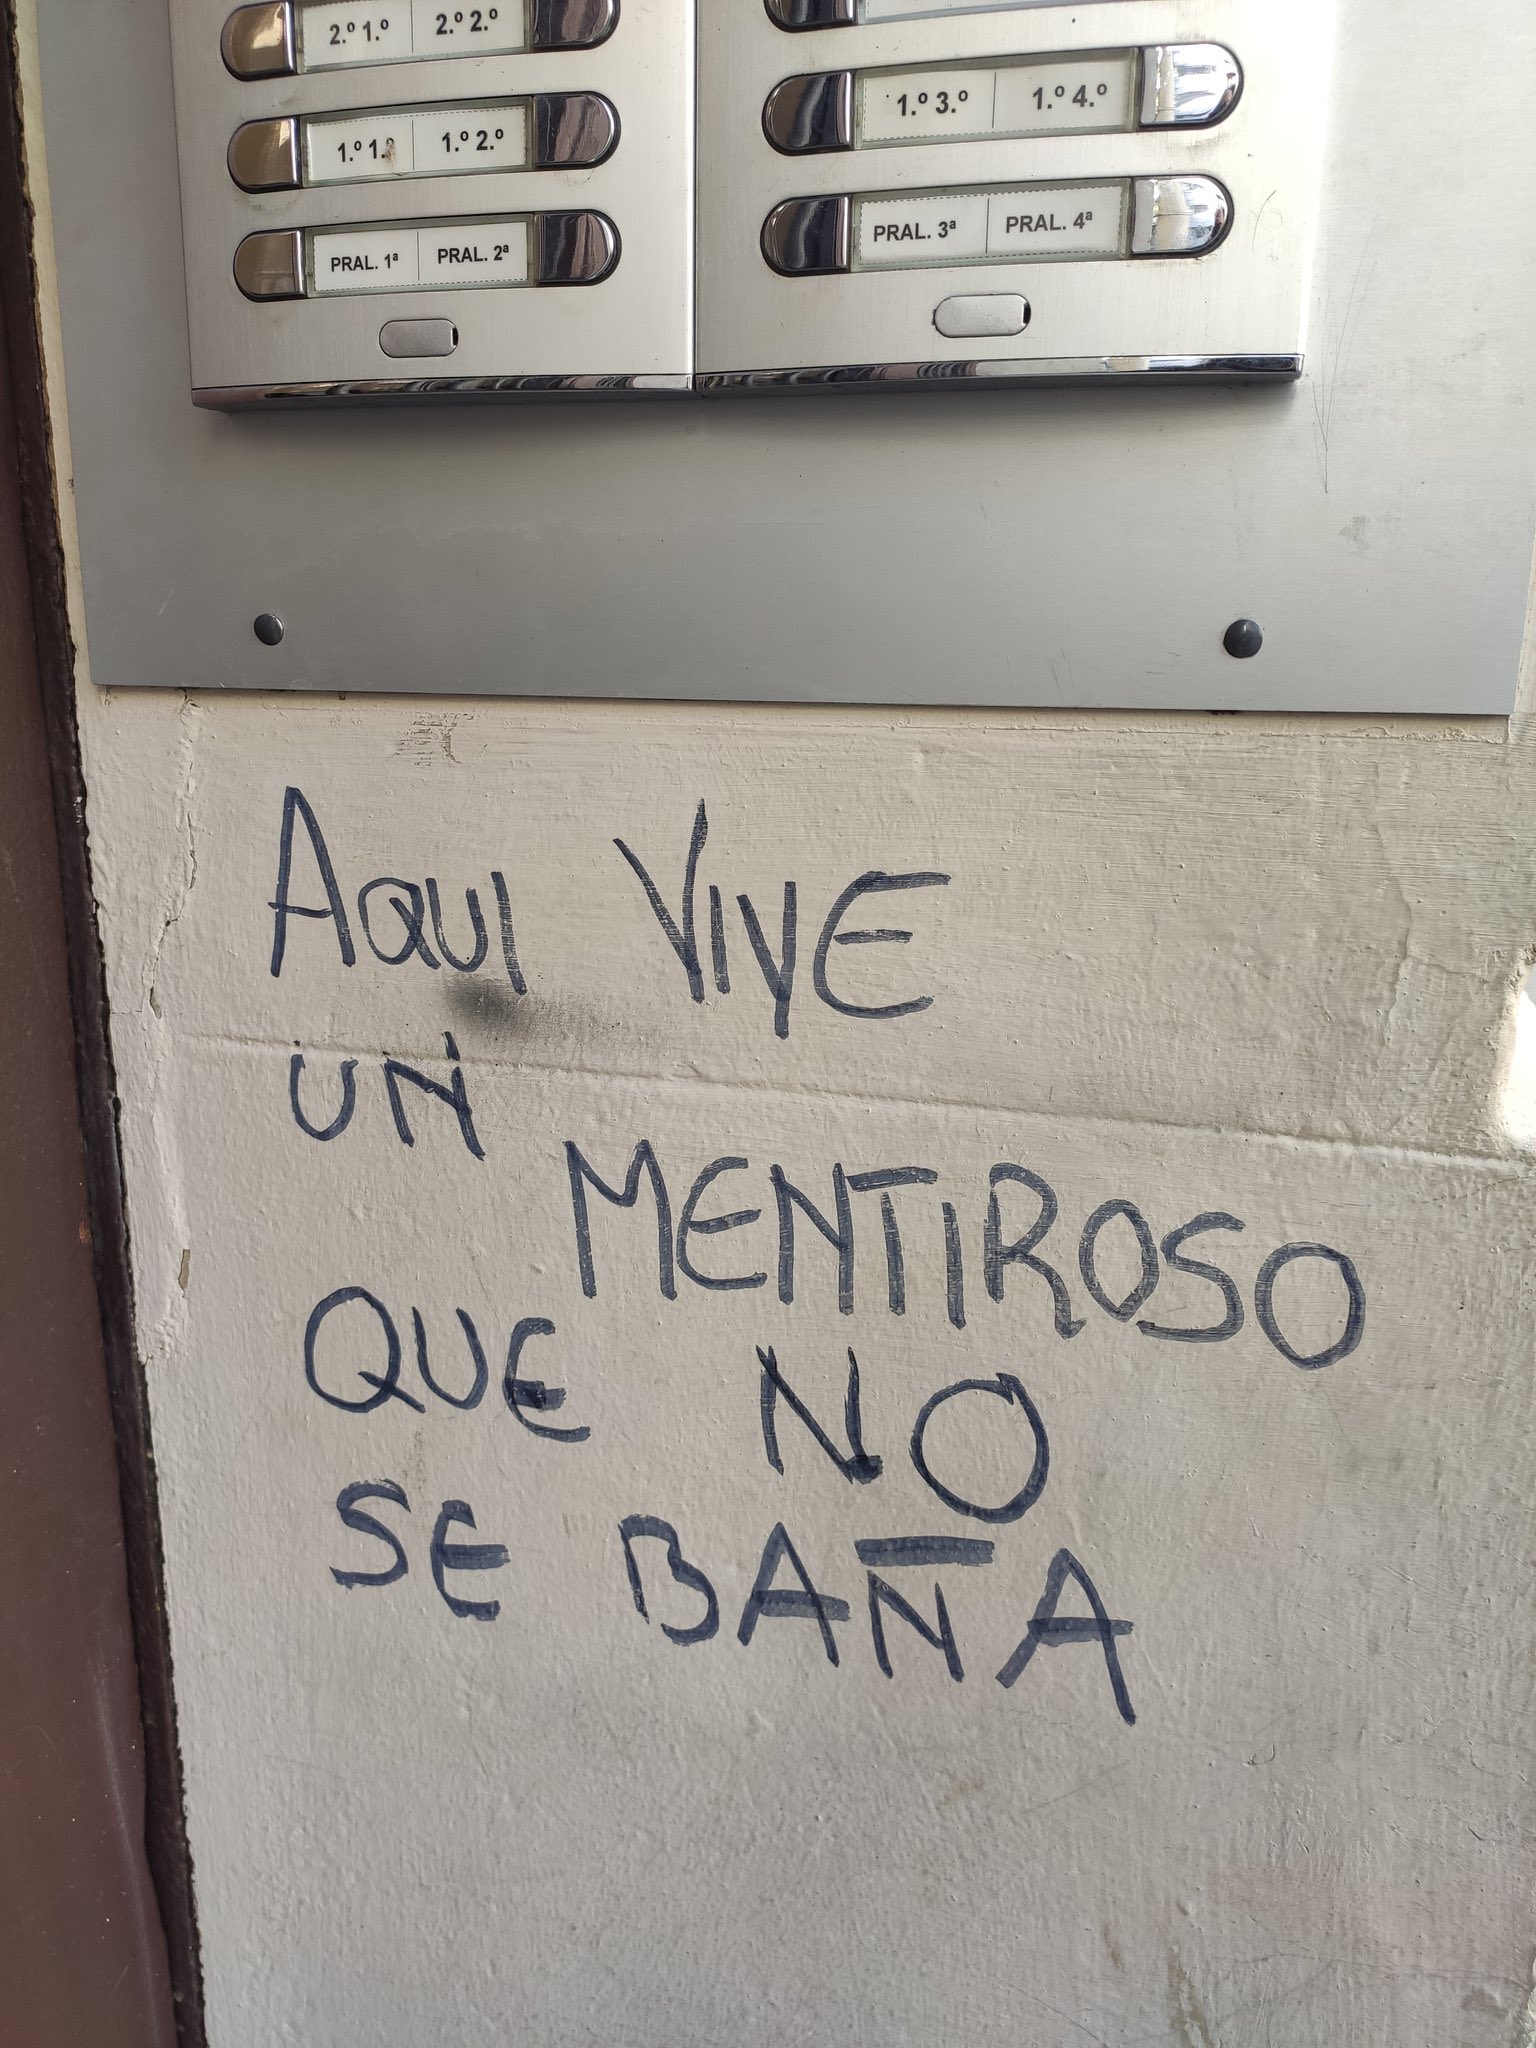 2.º 1.º 2.º 2.º
1.º 1.º 1.º 2.º
PRAL. 1ª PRAL. 2ª
1.º 3.º 1.º 4.º
PRAL. 3ª PRAL. 4ª
AQUI VIVE
UN
MENTIROSO
QUE NO
SE BAÑA